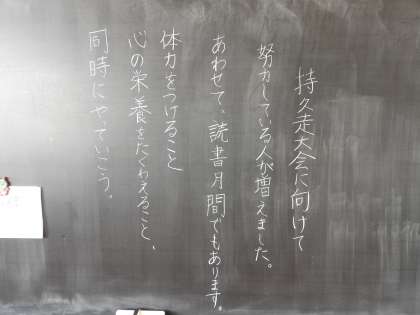 持久走大会に向けて
努力している人が増えました。
あわせて、読書月間でもあります。
体力をつけること
心の栄養をたくわえること、
同時にやっていこう。